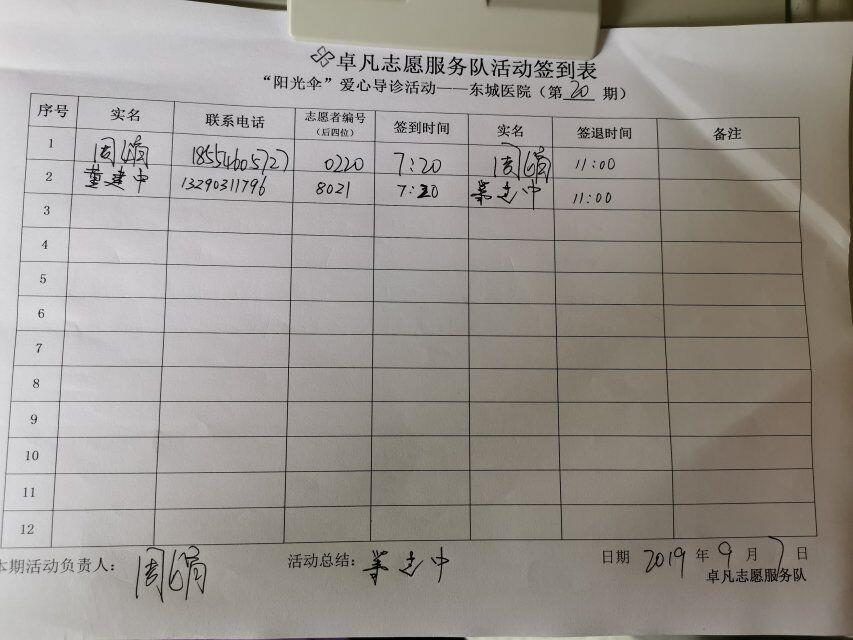 卓凡志愿服务队活动签到表
“阳光伞”爱心导诊活动——东城医院（第 20 期）
序号 实名 联系电话 志愿者编号（后四位） 签到时间 实名 签退时间 备注
1 周娟 18554605727 0220 7:20 周娟 11:00
2 董建中 13290311796 8021 7:20 董建中 11:00
3
4
5
6
7
8
9
10
11
12
本期活动负责人： 周娟 活动总结： 董建中 日期 2019 年 9 月 7 日
卓凡志愿服务队